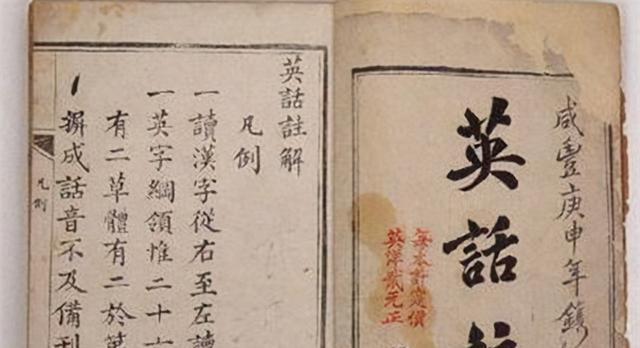 咸豐庚申年鐫
英話
每本計定價
英洋貳元正
英話註解
凡例
一讀漢字從右至左讀
一英字綱領惟二十六
有二草體有二於
摒成話音不及備刊
凡例